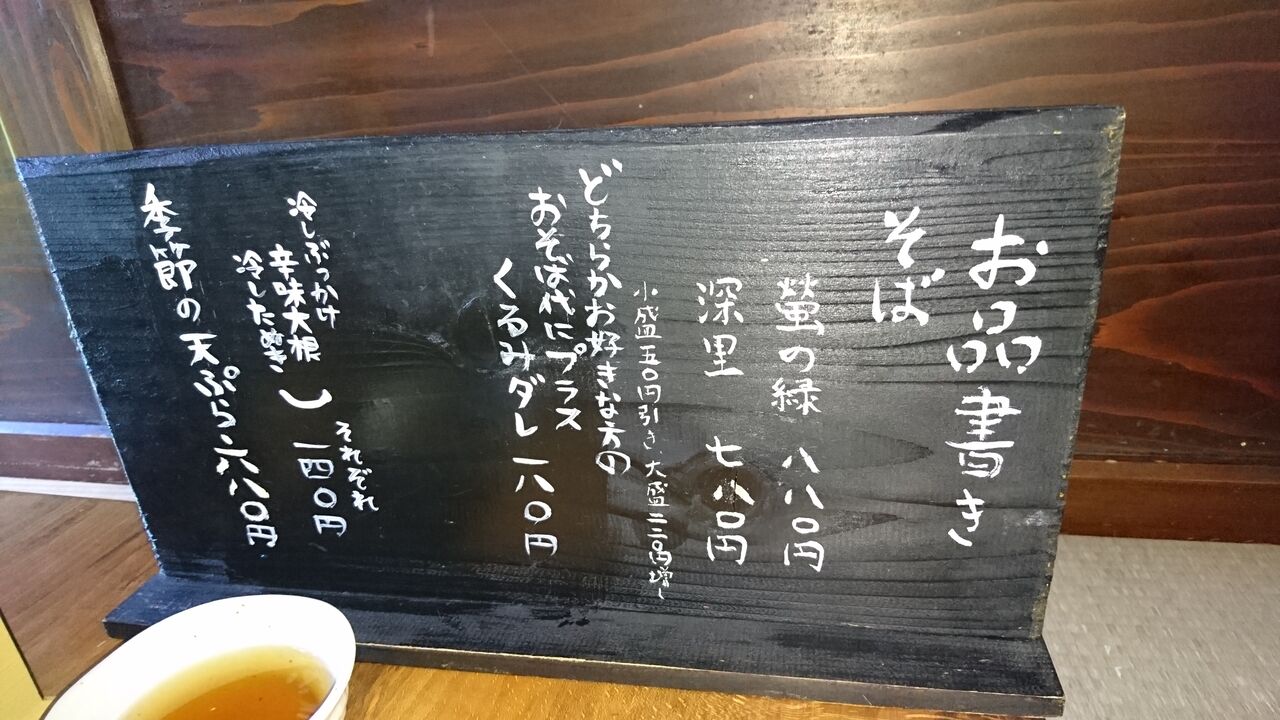 お品書き
そば
螢の緑 八八〇円
深里 七八〇円
小盛五〇円引き、大盛二二〇円増し
どちらかお好きな方の
おそば代にプラス
くるみダレ 一八〇円
冷しぶっかけ
辛味大根
冷したぬき
それぞれ
一四〇円
季節の天ぷら 六八〇円